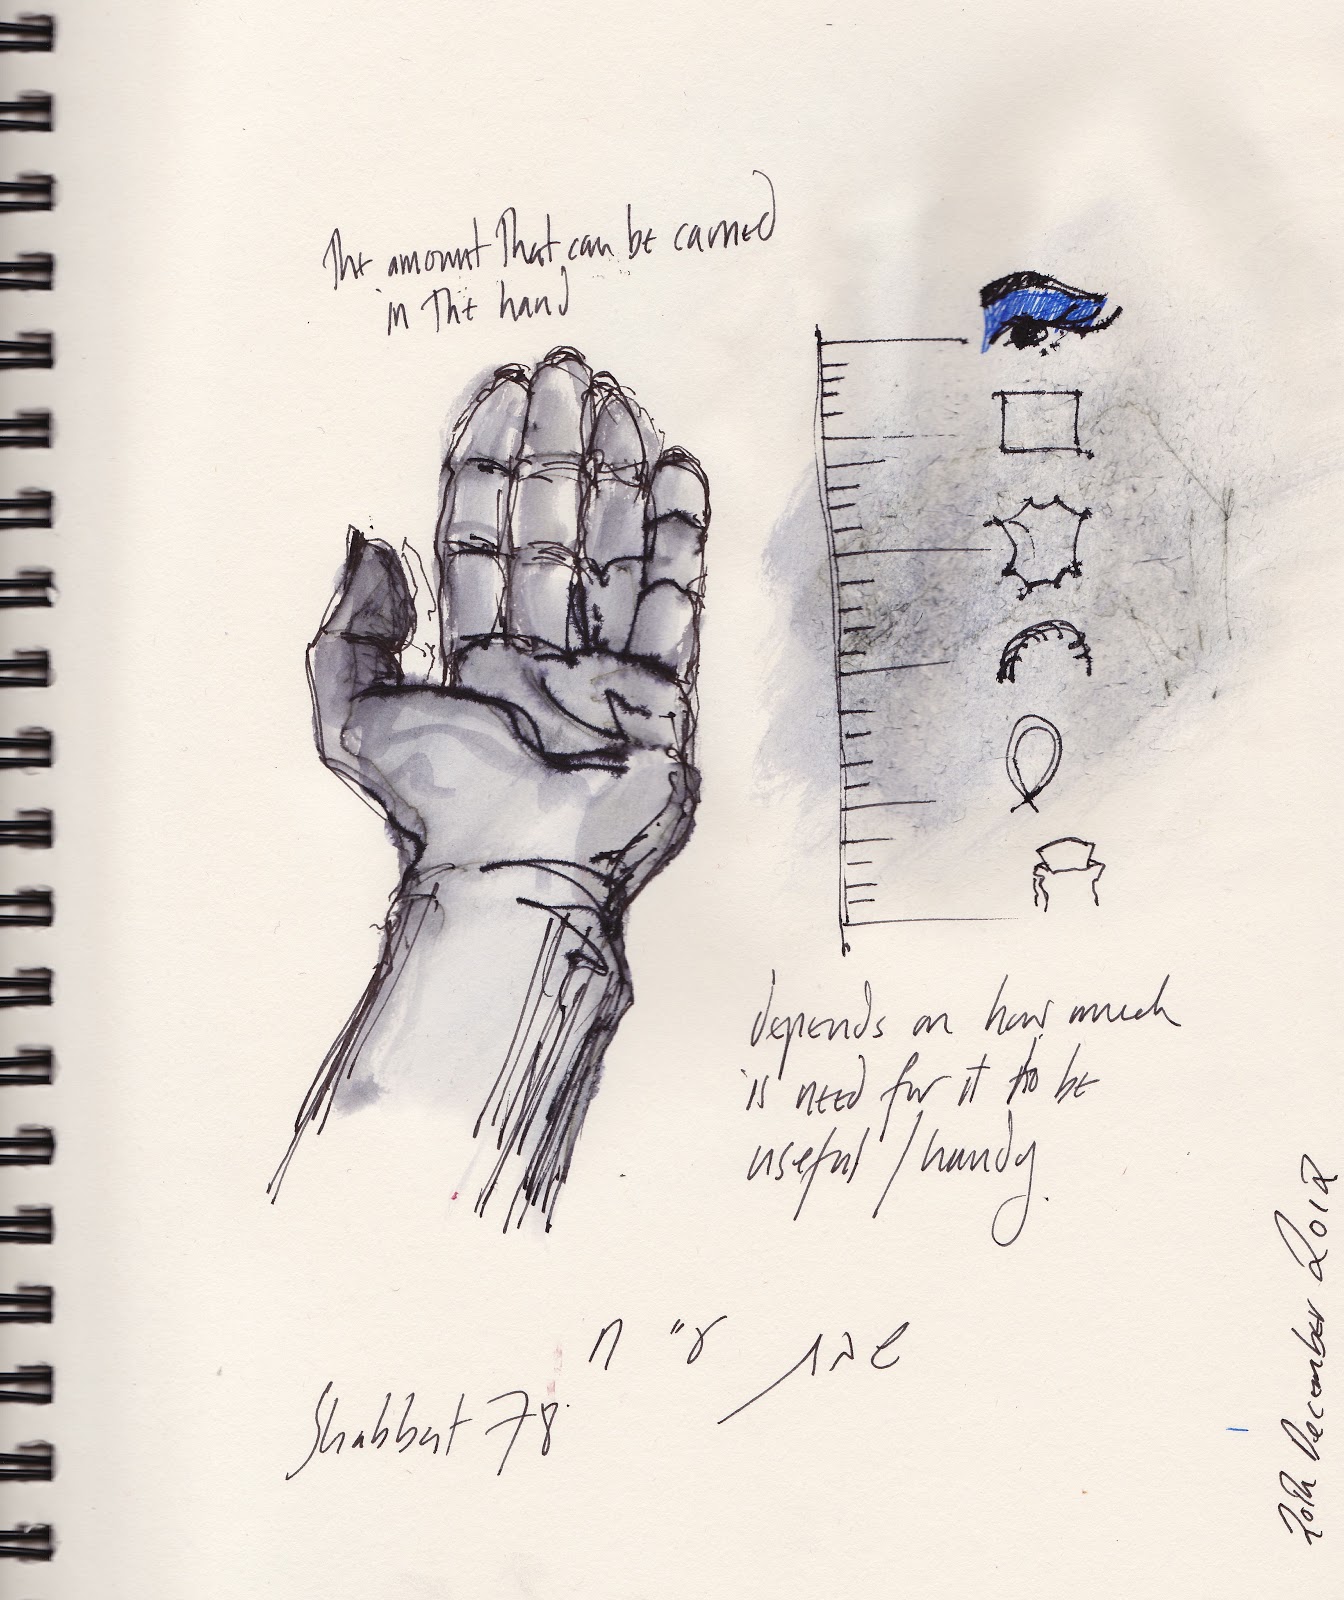 The amount that can be carried
in the hand
depends on how much
is need for it to be
useful / handy.
שבת ע"ח
Shabbat 78
20th December 2012